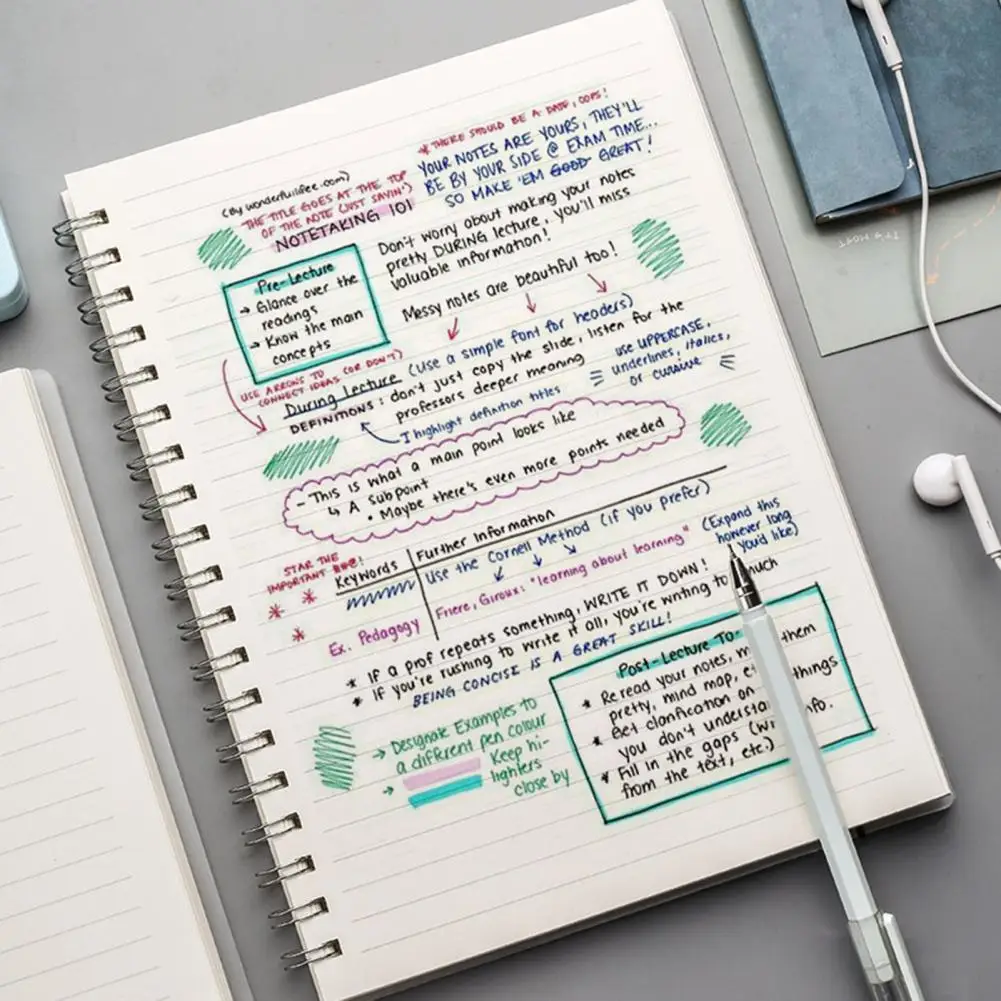 * THERE SHOULD BE A DATE, OOPS!
YOUR NOTES ARE YOURS, THEY'LL
BE BY YOUR SIDE @ EXAM TIME...
SO MAKE 'EM GOOD GREAT!
(By wonderfullfee.com)
THE TITLE GOES AT THE TOP
OF THE NOTE (JUST SAVIN')
NOTETAKING 101
Don't worry about making your notes
pretty DURING lecture, you'll miss
valuable information!
Messy notes are beautiful too!
Pre-Lecture
→ Glance over the
readings
→ Know the main
concepts
USE ARROWS TO
CONNECT IDEAS (OR DON'T)
During Lecture (use a simple font for headers)
DEFINITIONS: don't just copy the slide, listen for the
professors deeper meaning
use UPPERCASE,
underlines, italics,
or cursive
I highlight definition titles
- This is what a main point looks like
↳ A subpoint
• Maybe there's even more points needed
STAR THE
IMPORTANT !
Keywords
Further Information
Use the Cornell Method (if you prefer)
(Expand this
however long
you'd like)
Ex. Pedagogy
Friere, Giroux: "learning about learning"
* If a prof repeats something, WRITE IT DOWN!
* If you're rushing to write it all, you're writing too much
BEING CONCISE IS A GREAT SKILL!
Post-Lecture To-
* Re read your notes, them
pretty, mind map, things
* Get clarification on
you don't
* Fill in the gaps
from the text, etc.)
→ Designate Examples to
a different pen colour
→ Keep hi-
lighters
close by